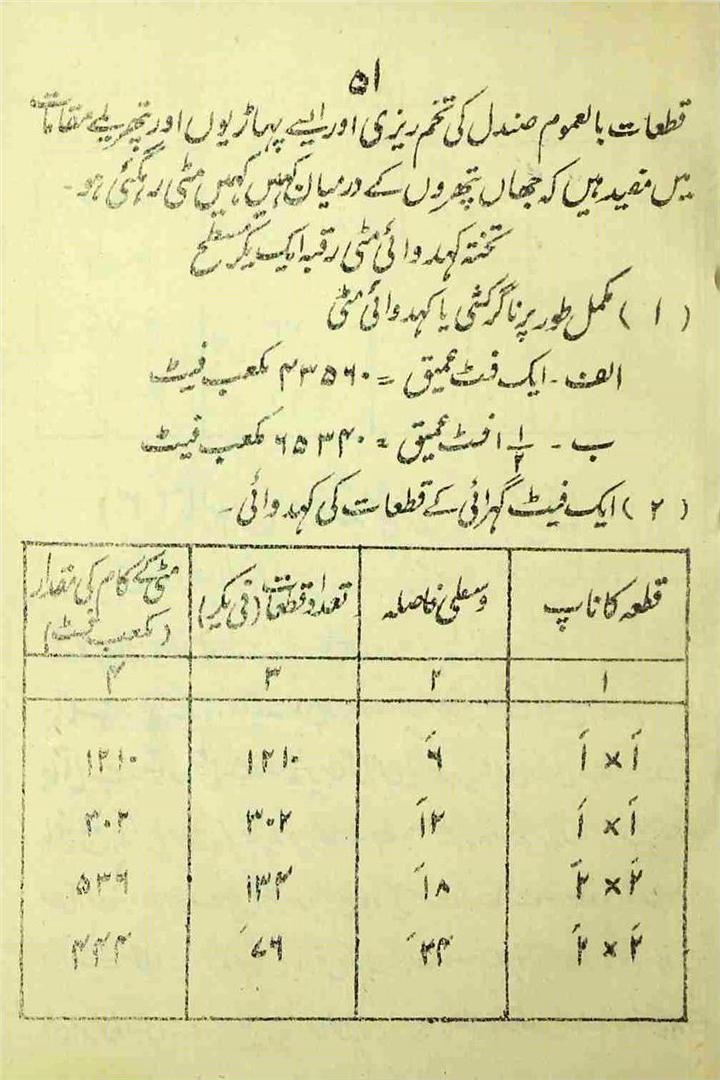 ۵۱
قطعات بالعموم صندل کی تخم ریزی اور ایسے پہاڑیوں اور پتھریلے مقامات
میں مفید ہیں کہ جہاں پتھروں کے درمیان کہیں کہیں مٹی رہگئی ہو۔
تختہ کہدوائی مٹی رقبہ ایک ایکر مسطح
(۱) مکمل طور پر ناگر کشی یا کہدوائی مٹی
الف۔ ایک فٹ عمیق = ۴۳۵۶۰ مکعب فیٹ
ب۔ ۱ ۱/۲ فٹ عمیق = ۶۵۳۴۰ مکعب فیٹ
(۲) ایک فیٹ گہرائی کے قطعات کی کہدوائی۔
قطعہ کا ناپ | وسطی فاصلہ | تعداد قطعات (فی یکر) | مٹی کے کام کی مقدار (مکعب فٹ)
۱ | ۲ | ۳ | ۴
۱َ × ۱َ | ۶َ | ۱۲۱۰ | ۱۲۱۰
۱َ × ۱َ | ۱۲َ | ۳۰۲ | ۳۰۲
۲َ × ۲َ | ۱۸َ | ۱۳۴ | ۵۳۶
۲َ × ۲َ | ۲۴َ | ۷۶